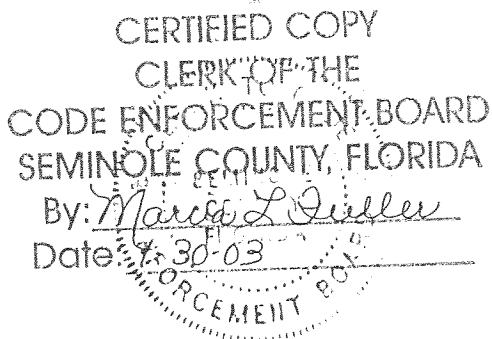 CERTIFIED COPY
CLERK OF THE
CODE ENFORCEMENT BOARD
SEMINOLE COUNTY, FLORIDA
By: Marcia L Fuller
Date 30-03
ORCEMENT BOA